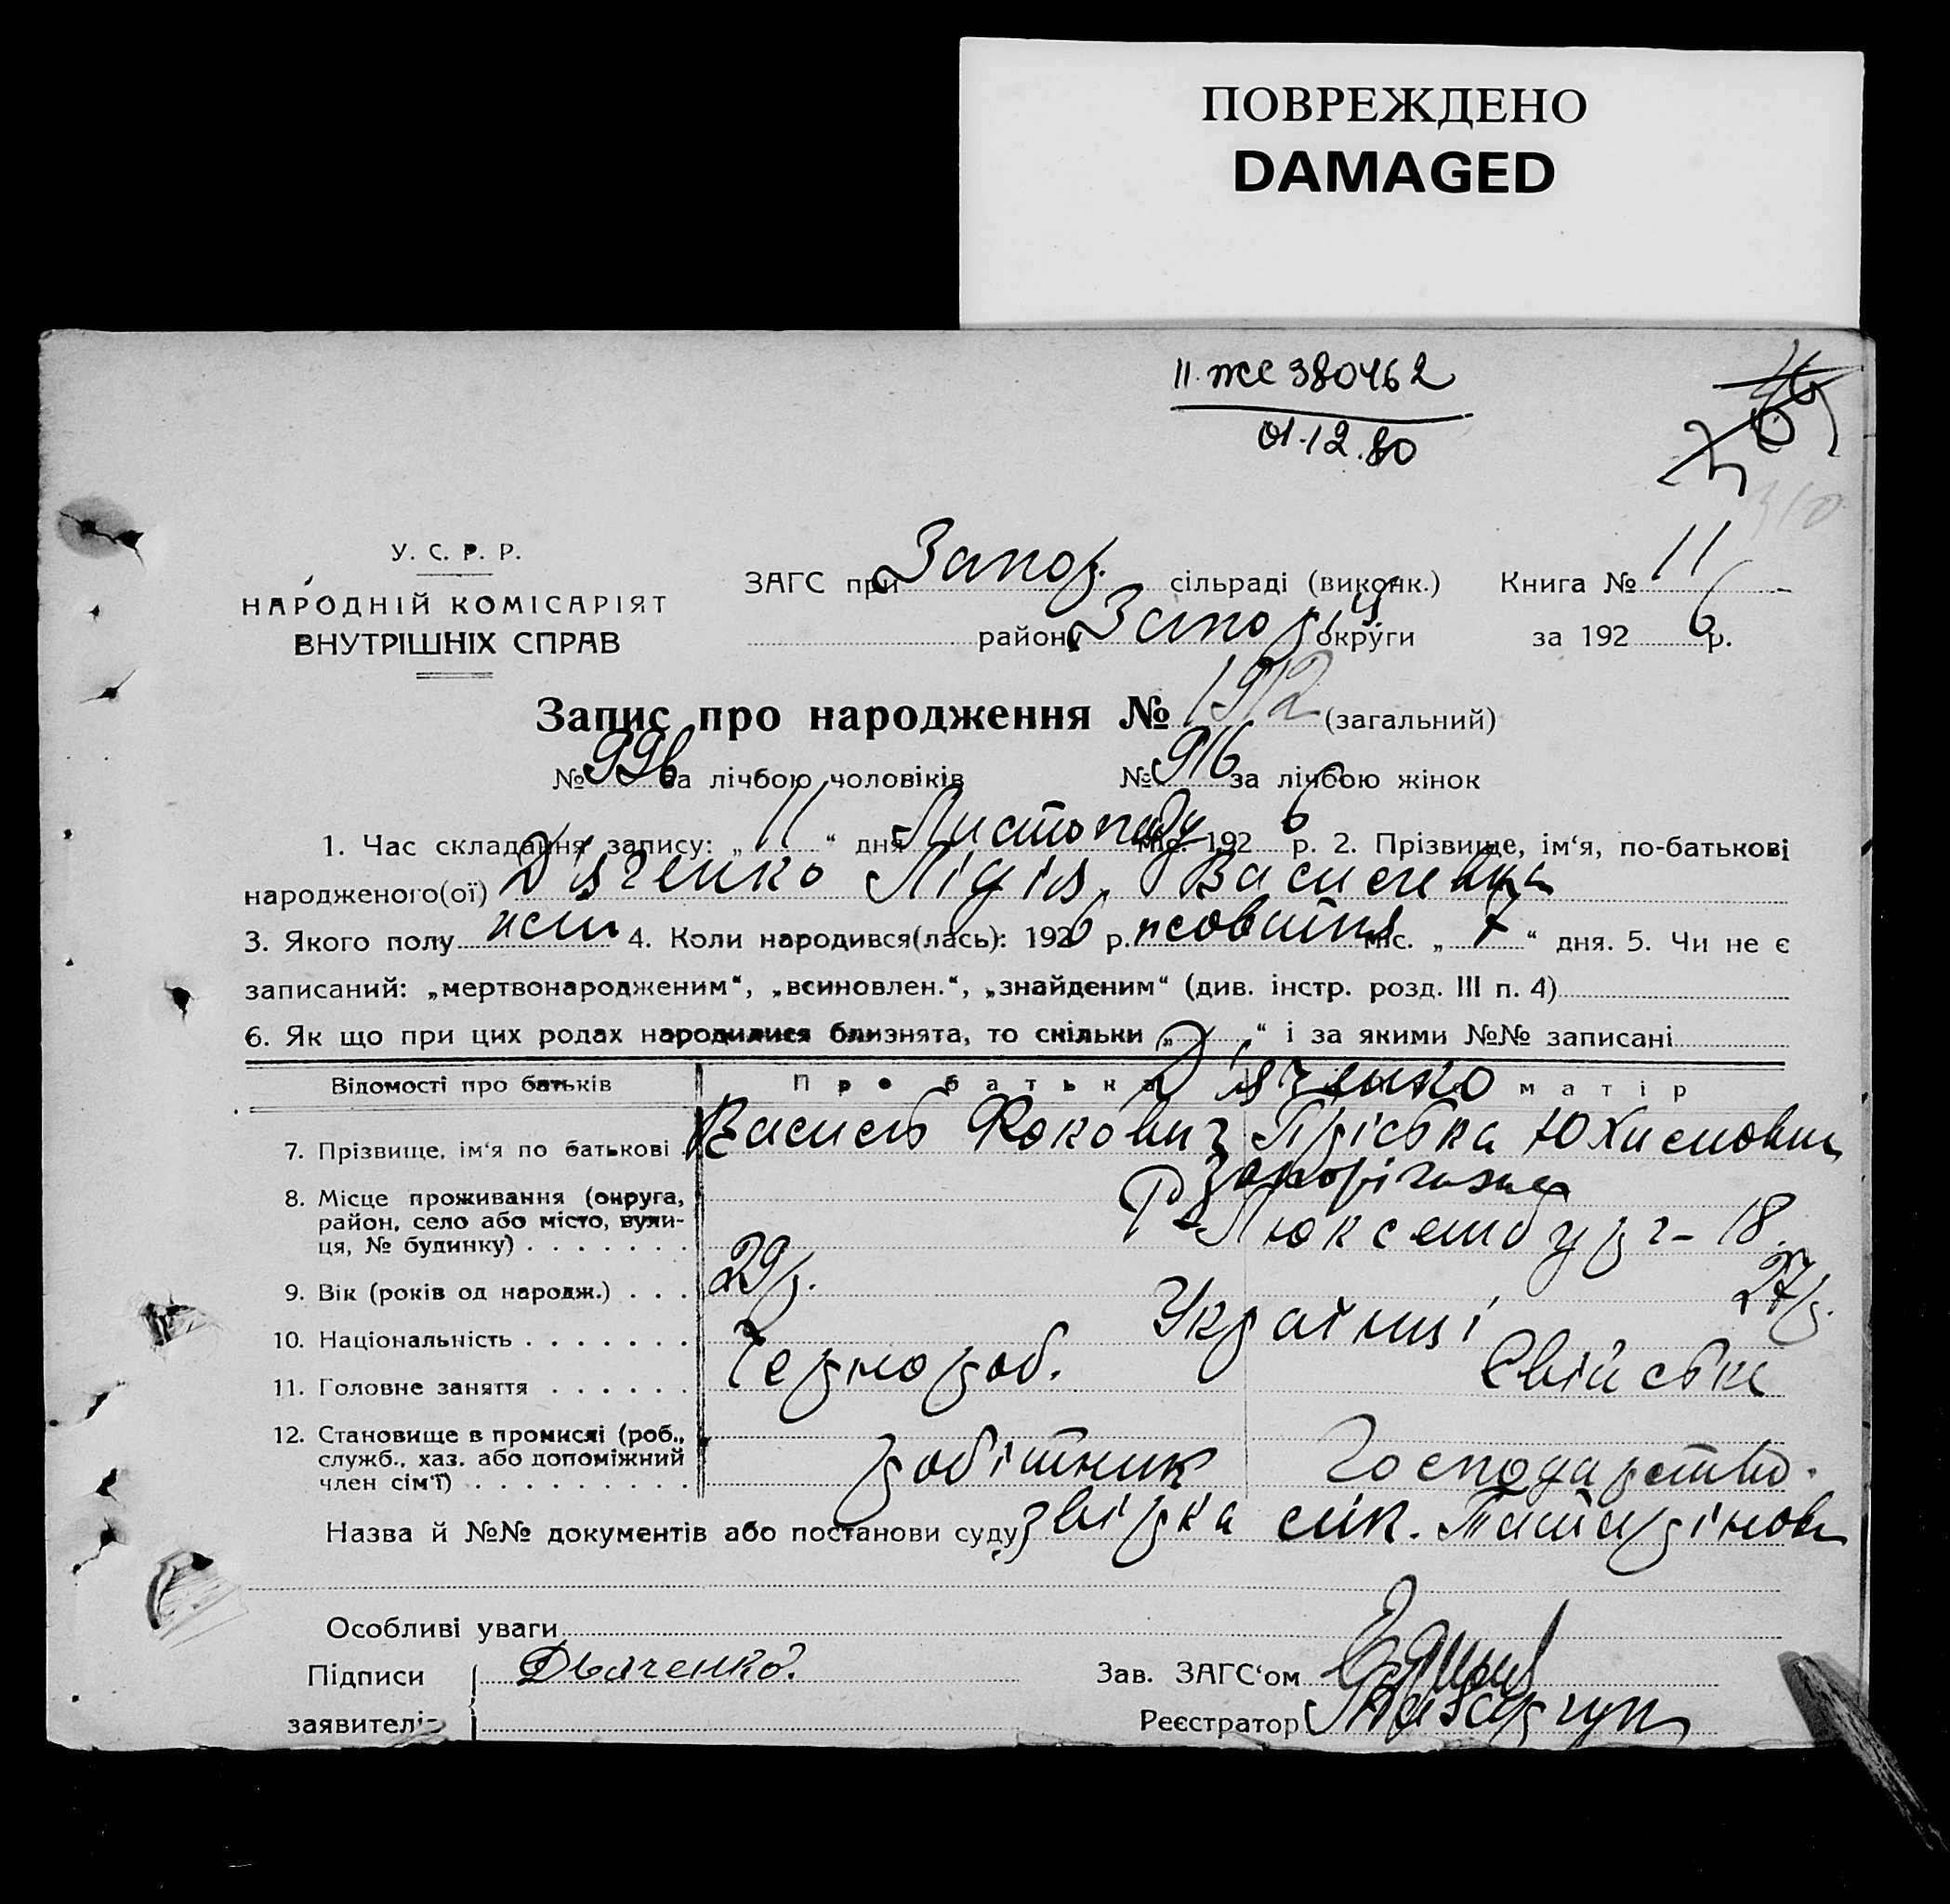 ПОВРЕЖДЕНО
DAMAGED
II ЖС 380462
01.12.80
У. С. Р. Р.
НАРОДНІЙ КОМІСАРІЯТ
ВНУТРІШНІХ СПРАВ
ЗАГС при Запор. сільраді (виконк.) Книга № 11
району Запоріз. округи за 1926 р.
Запис про народження № 1912 (загальний)
№ 996 за лічбою чоловіків № 916 за лічбою жінок
1. Час складання запису: „11“ дня Листопаду міс. 1926 р. 2. Прізвище, ім‘я, по-батькові
народженого(ої) Д'яченко Лідія Василевна
3. Якого полу жін 4. Коли народився(лась): 1926 р. жовтня міс. „7“ дня. 5. Чи не є
записаний: „мертвонародженим“, „всиновлен.“, „знайденим“ (див. інстр. розд. III п. 4)
6. Як що при цих родах народилися близнята, то скільки „ “ і за якими №№ записані
Відомості про батьків Про батька Д'яченко матір
7. Прізвище, ім‘я по батькові Василь Фокович Пріська Юхимовна
8. Місце проживання (округа, район, село або місто, вули-ця, № будинку) Запоріжжя
Р. Люксембург - 18
9. Вік (років од народж.) 29 р. 27 р.
10. Національність Українці
11. Головне заняття Чернороб. Свійське
12. Становище в промислі (роб., служб., хаз. або допоміжний член сім‘ї) робітник Господарство.
Назва й №№ документів або постанови суду звірка
Особливі уваги
Підписи заявителів Дьяченко.
Зав. ЗАГС‘ом
Реєстратор